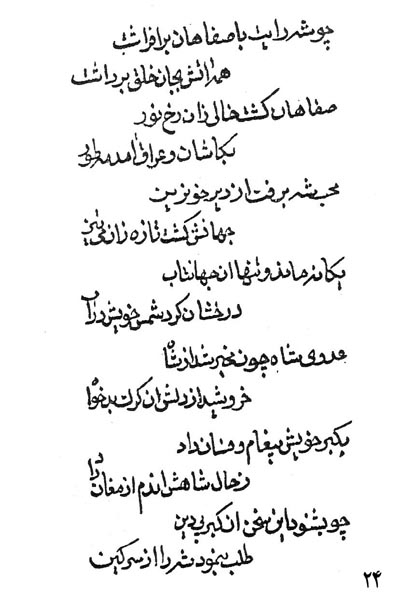 چو شه رایت باصفاهان برافراشت
بجان خلق برداشت
صفاهان گشت خالی زان رخ نور
بکاشان و عراق آمد مه طور
محب شه برفت از دیر
جهانش گشت تازه زان می
یکانه ماند و تنها ان جهانتاب
درخشان کرد شمس خویش در آب
عدوی شاه چون مخبر شد از شاه
خروشید از دلش ان کرک بدخواه
بکبر خویش پیغام و فسان داد
ز حال شاهش اندم ارمغان داد
چو بشنود این سخن ان کبر بیدین
طلب بنمود شه را از سر کین
۲۴